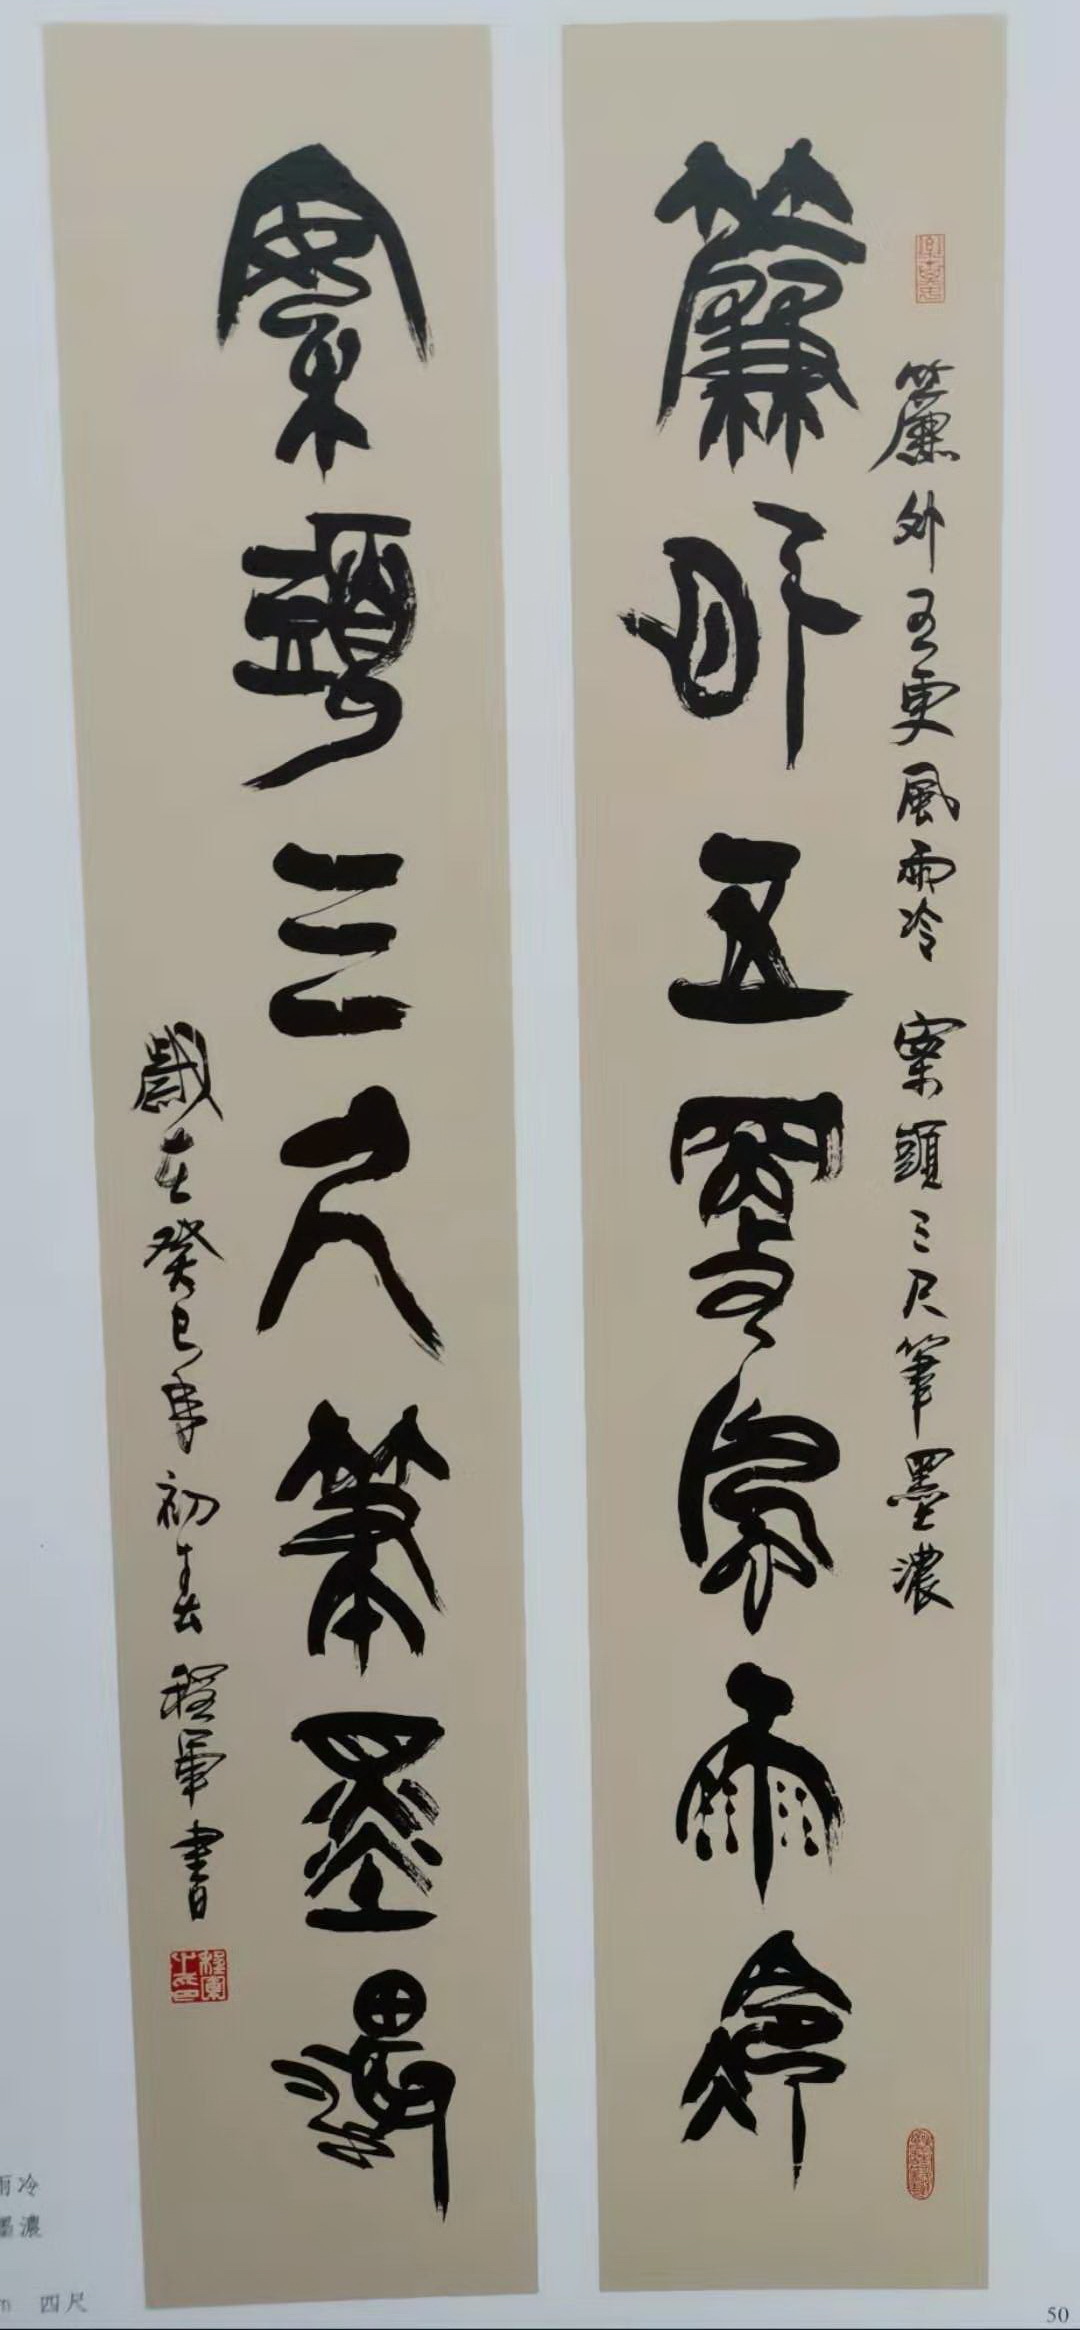 簾外五更風雨冷 案頭三尺筆墨濃
簾外五更風雨冷
案頭三尺筆墨濃
歲在癸巳年初春程軍書
雨冷
墨濃
m 四尺
50